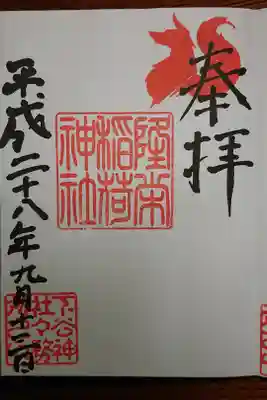 奉拝
隆栄
稲荷
神社
平成二十八年九月十二日
下谷神
社々務